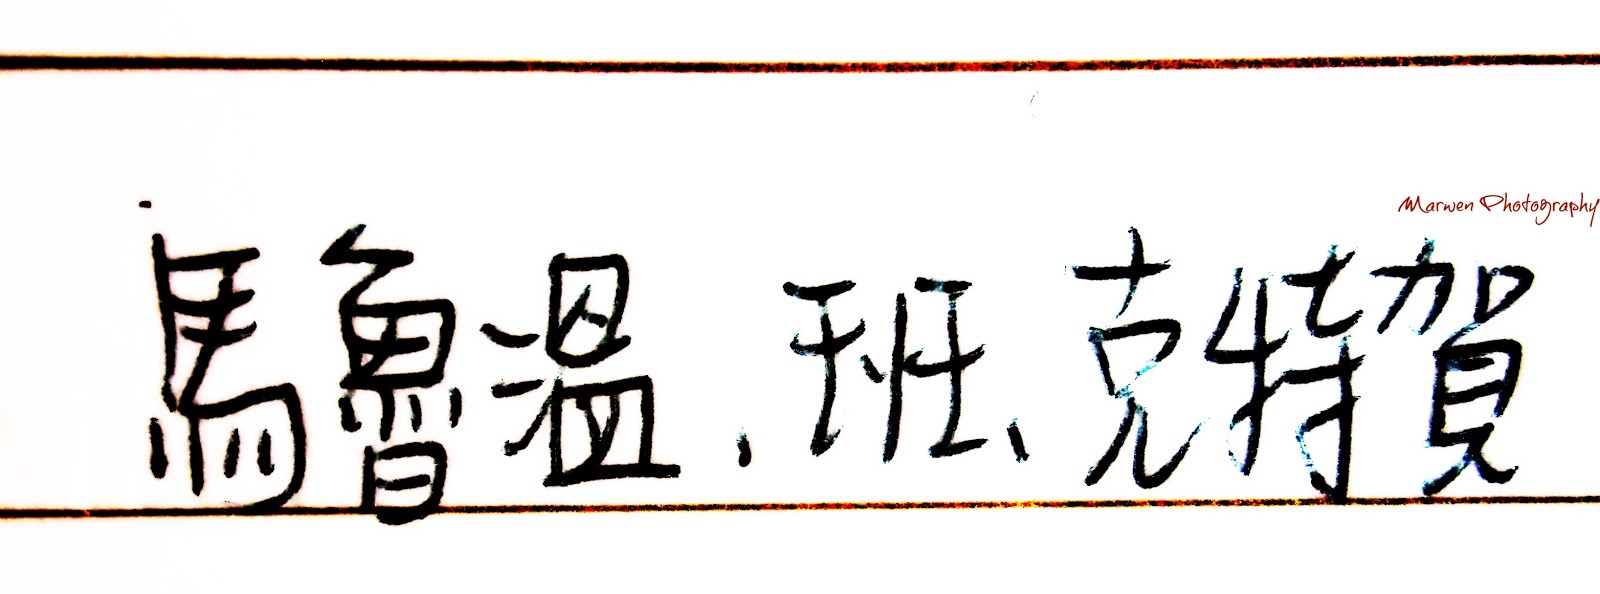 Marwen Photography
馬魯溫.班、克特賀